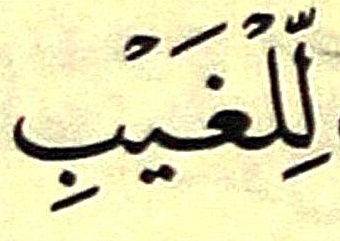 لِّلْغَيْبِ